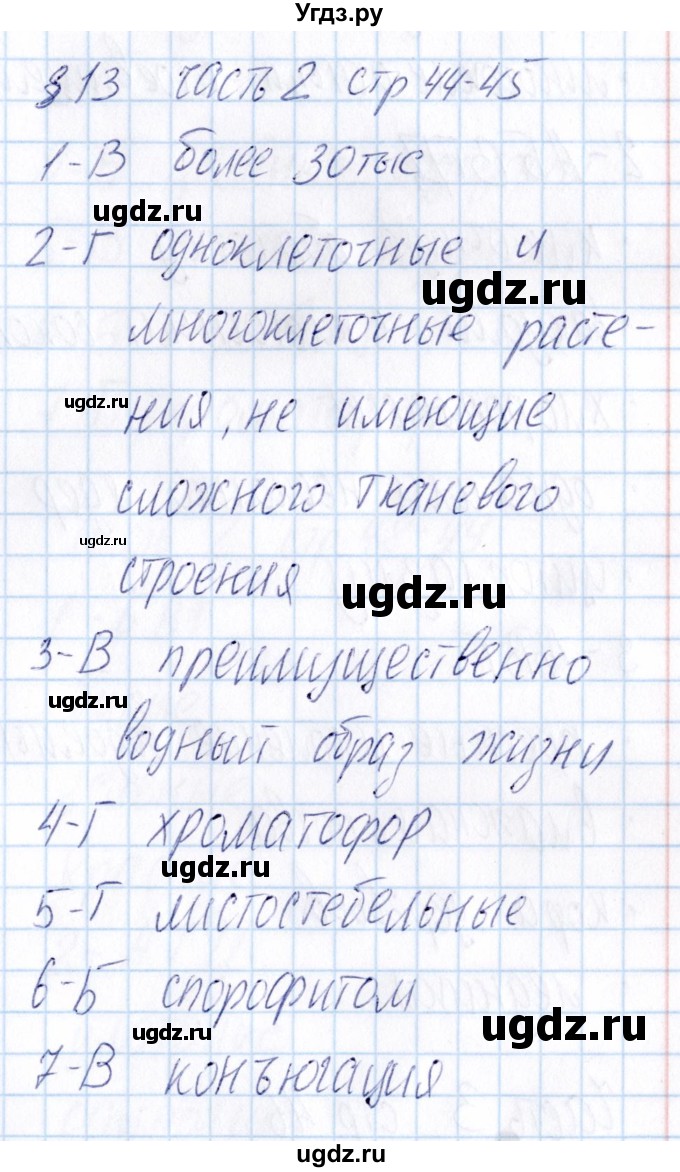 Угдз.ру
§ 13 часть 2 стр 44-45
1-В более 30 тыс
ugdz.ru
2-Г одноклеточные и
ugdz.ru
многоклеточные расте-
ugdz.ru
ния, не имеющие
сложного тканевого
ugdz.ru
строения
ugdz.ru
3-В преимущественно
ugdz.ru
водный образ жизни
4-Г хроматофор
ugdz.ru
5-Г листостебельные
6-Б спорофитом
ugdz.ru
ugdz.ru
7-В конъюгация
ugdz.ru